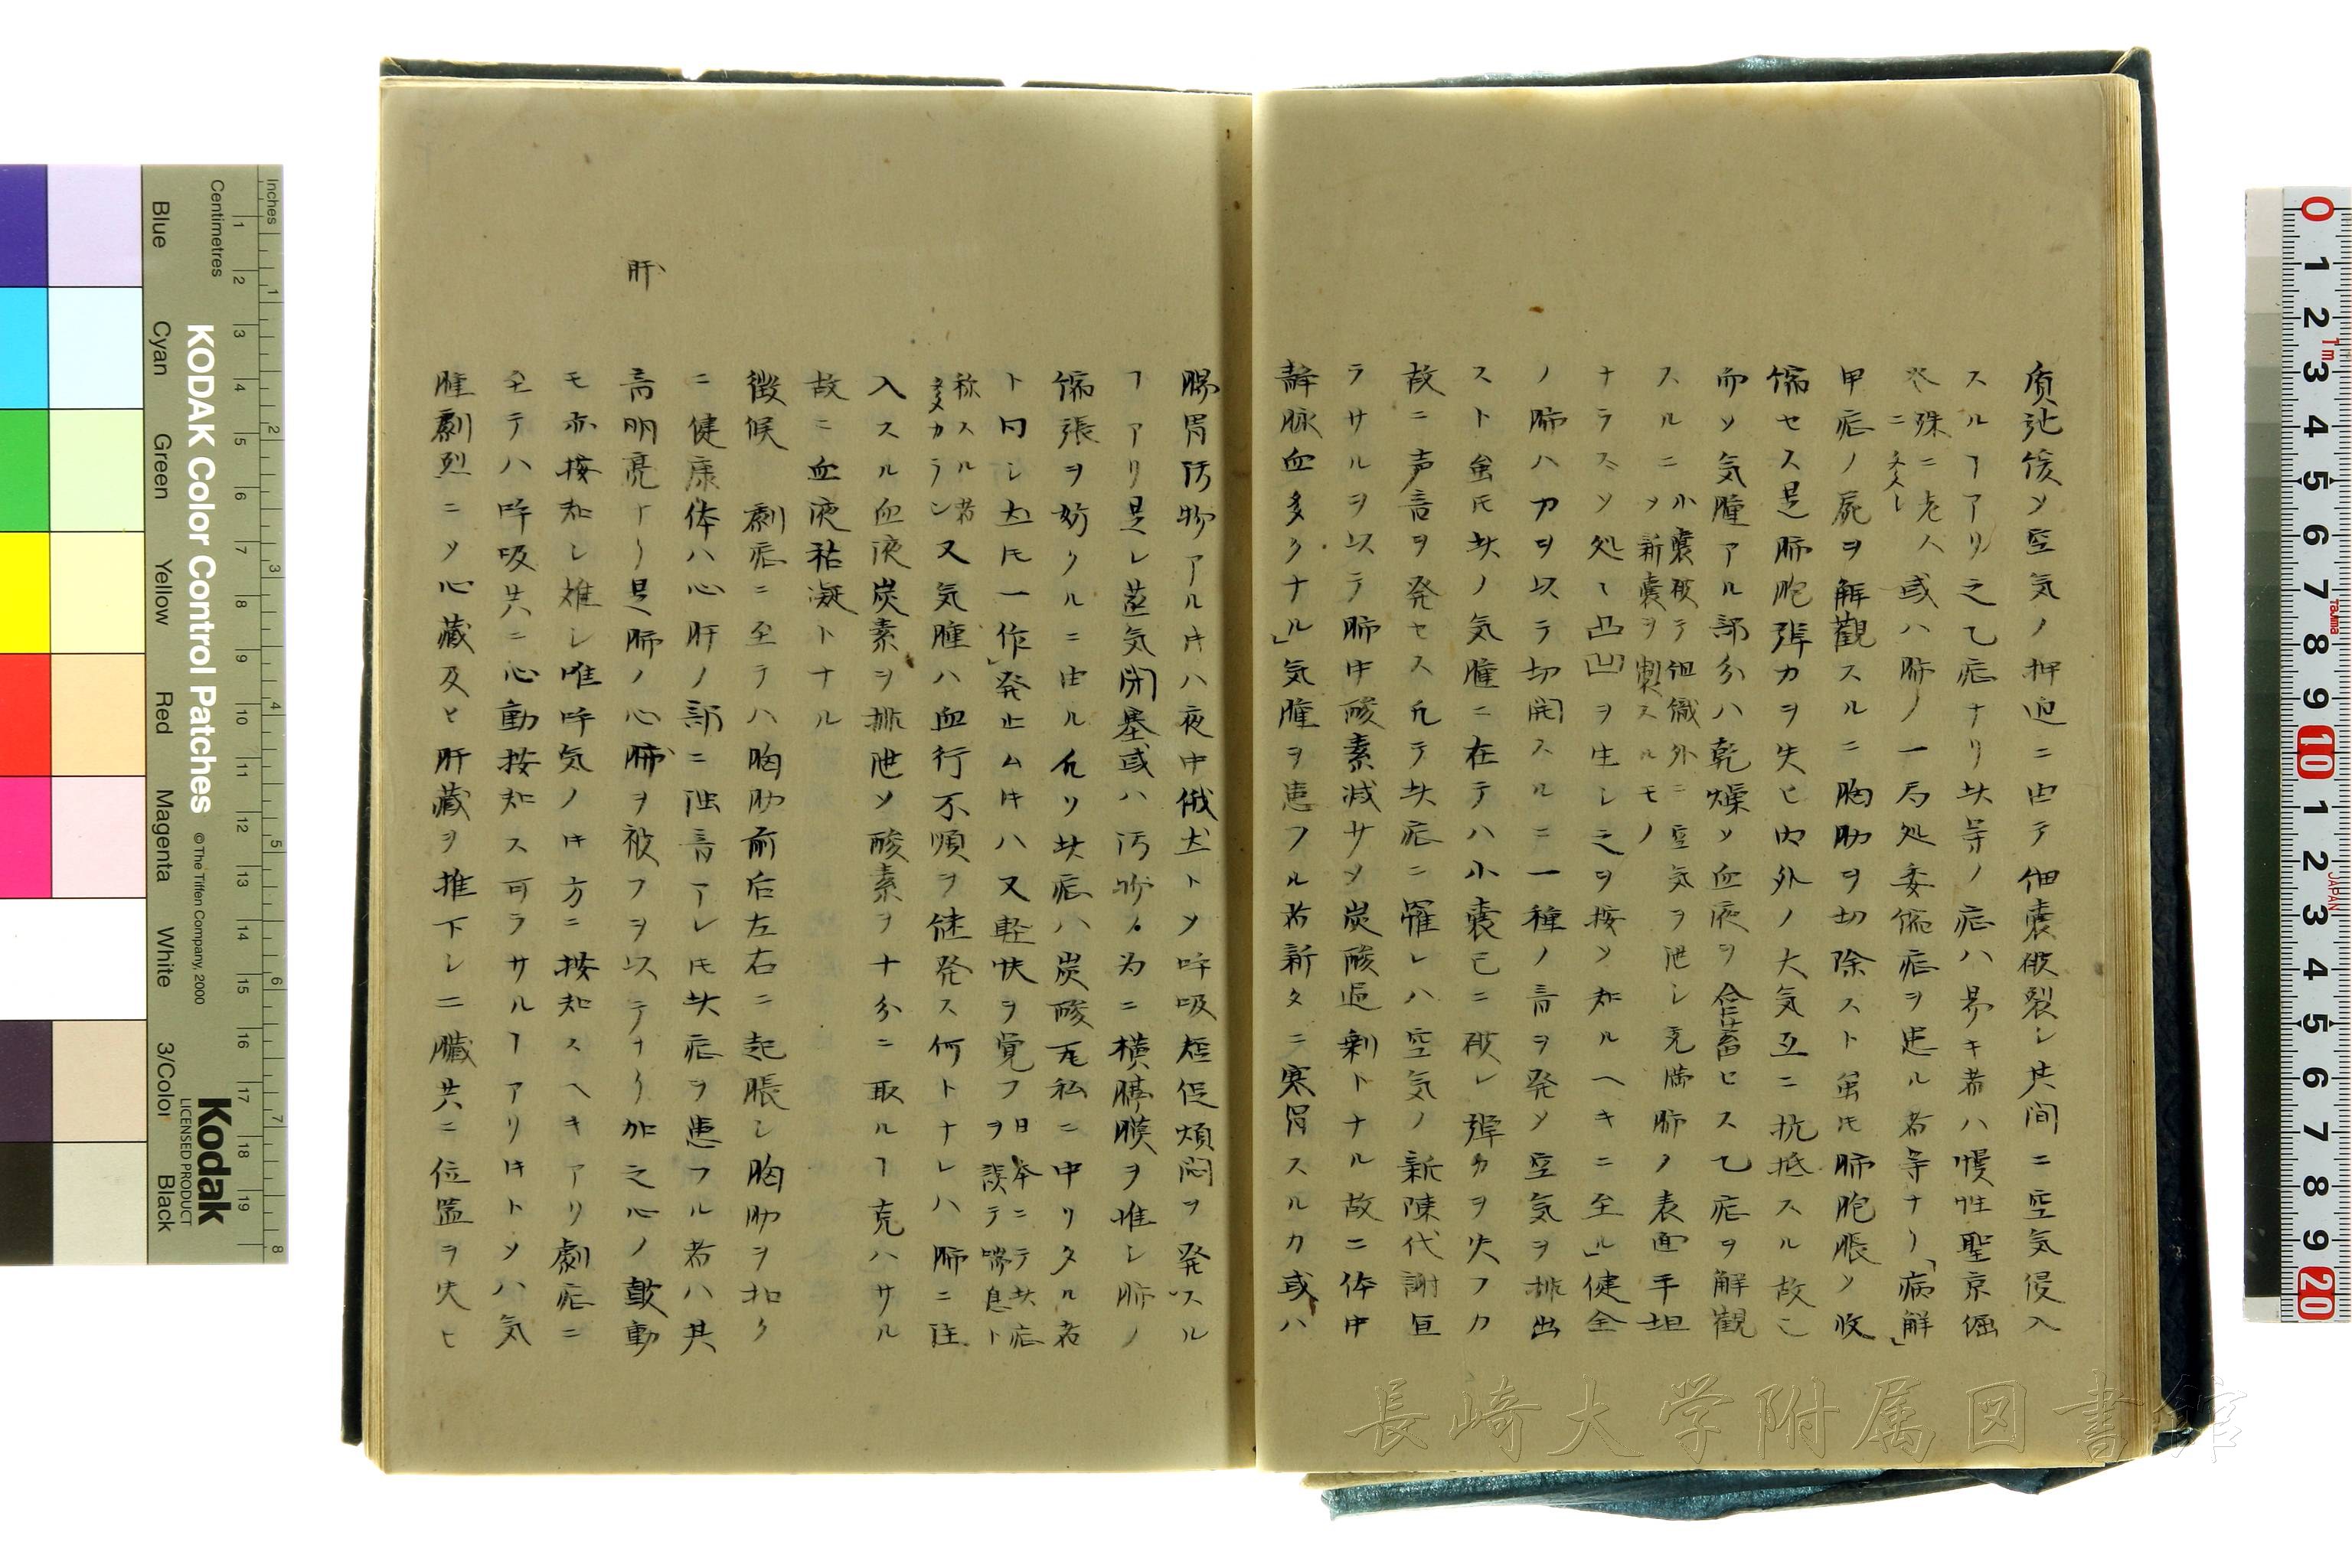 質弛緩ソ空気ノ押迫ニ由テ細嚢破裂シ其間ニ空気侵入
スルヿアリ之乙症ナリ此等ノ症ハ易キ者ハ慢性聖京倔
殊ニ老人
ニ多シ
或ハ肺ノ一局処委縮症ヲ患ル者等ナリ」病解」
甲症ノ屍ヲ解観スルニ胸肋ヲ切除スト虽𪜈肺胞脹ソ收
縮セス是肺胞弾力ヲ失ヒ内外ノ大気互ニ抗抵スル故ニ
而ソ気腫アル部分ハ乾燥ソ血液ヲ含畜セス乙症ヲ解観
スルニ
小嚢破テ細織外ニ空気ヲ泄シ充満
ソ新嚢ヲ製スルモノ
肺ノ表面平坦
ナラスソ処々凸凹ヲ生シ之ヲ按ソ知ルヘキニ至ル」健全
ノ肺ハ刀ヲ以テ切開スルニ一種ノ音ヲ発ソ空気ヲ排出
スト虽𪜈此ノ気腫ニ在テハ小嚢已ニ破レ弾力ヲ失フカ
故ニ声音ヲ発セス凡テ此症ニ罹レハ空気ノ新陳代謝宜
ラサルヲ以テ肺中酸素減サソ炭酸過剰トナル故ニ体中
静脉血多クナル」気腫ヲ患フル者新タニ寒冒スルカ或ハ
腸胃汚物アル片ハ夜中俄然トソ呼吸短促煩悶ヲ発スル
ヿアリ是レ蒸気閉塞或ハ汚物ノ為ニ横膈膜ヲ推シ肺ノ
縮張ヲ妨クルニ由ル凡ソ此症ハ炭酸瓦私ニ中リタル者
ト同シ然𪜈一作」発止ム片ハ又軽快ヲ覚フ
日本ニテ此症
ヲ誤テ喘息ト
称スル者
多カラン
又気腫ハ血行不順ヲ継発ス何トナレハ肺ニ注
入スル血液炭素ヲ排泄ソ酸素ヲ十分ニ取ルヿ克ハサル
故ニ血液粘凝トナル
徴候 劇症ニ至テハ胸肋前后左右ニ起脹シ胸肋ヲ扣ク
ニ健康体ハ心肝ノ部ニ濁音アレ𪜈此症ヲ患フル者ハ其
肝
音明亮ナリ是肺ノ心肺ヲ被フヲ以テナリ加之心ノ鼓動
モ亦按知シ難シ唯呼気ノ片方ニ按知スヘキアリ劇症ニ
至テハ呼吸共ニ心動按知ス可ラサルヿアリ片トソハ気
腫劇烈ニソ心藏及ヒ肝藏ヲ推下シ二臓共ニ位置ヲ失ヒ
KODAK Color Control Patches
© The Tiffen Company, 2000
Kodak
LICENSED PRODUCT
Blue
Cyan
Green
Yellow
Red
Magenta
White
3/Color
Black
Centimetres
Inches
JAPAN
長崎大学附属図書館